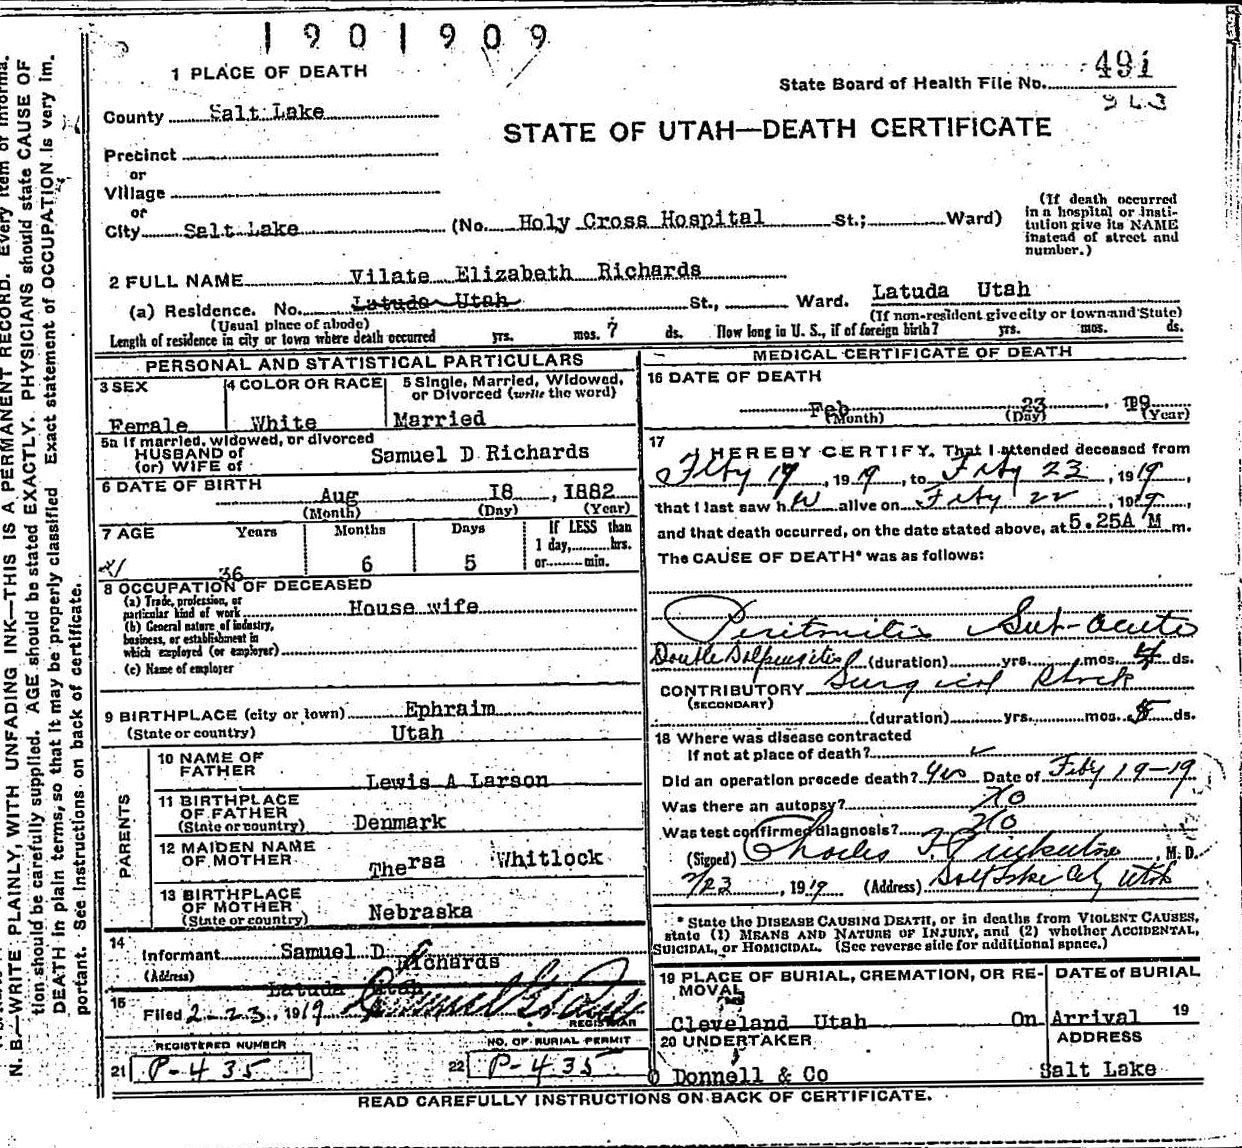 1901909
1 PLACE OF DEATH
State Board of Health File No. 491
County Salt Lake
STATE OF UTAH—DEATH CERTIFICATE
Precinct
or
Village
or
City Salt Lake (No. Holy Cross Hospital St.; Ward)
(If death occurred in a hospital or insti-
tution give its NAME
instead of street and
number.)
2 FULL NAME Vilate Elizabeth Richards
(a) Residence. No. Latuda Utah St., Ward. Latuda Utah
(Usual place of abode) (If non-resident give city or town and State)
Length of residence in city or town where death occurred yrs. mos. 7 ds. How long in U. S., if of foreign birth? yrs. mos. ds.
PERSONAL AND STATISTICAL PARTICULARS
3 SEX
Female
4 COLOR OR RACE
White
5 Single, Married, Widowed,
or Divorced (write the word)
Married
5a If married, widowed, or divorced
HUSBAND of
(or) WIFE of Samuel D Richards
6 DATE OF BIRTH
Aug 18, 1882
(Month) (Day) (Year)
7 AGE Years Months Days If LESS than
1 day, hrs.
or min.
36 6 5
8 OCCUPATION OF DECEASED
(a) Trade, profession, or
particular kind of work House wife
(b) General nature of industry,
business, or establishment in
which employed (or employer)
(c) Name of employer
9 BIRTHPLACE (city or town) Ephraim
(State or country) Utah
PARENTS
10 NAME OF
FATHER Lewis A Larson
11 BIRTHPLACE
OF FATHER
(State or country) Denmark
12 MAIDEN NAME
OF MOTHER Thersa Whitlock
13 BIRTHPLACE
OF MOTHER
(State or country) Nebraska
14
Informant Samuel D Richards
(Address) Latuda Utah
15
Filed 2-23, 1919
REGISTRAR
REGISTERED NUMBER
21 P-435
NO. OF BURIAL PERMIT
22 P-435
MEDICAL CERTIFICATE OF DEATH
16 DATE OF DEATH
Feb 23, 19
(Month) (Day) (Year)
17
I HEREBY CERTIFY, That I attended deceased from
Feby 19, 1919, to Feby 23, 1919,
that I last saw her alive on Feby 22, 1919,
and that death occurred, on the date stated above, at 5.25A M m.
The CAUSE OF DEATH* was as follows:
Peritonitis Sub-acute
Double Salpingitis (duration) yrs. mos. ds.
CONTRIBUTORY Surgical Shock
(SECONDARY)
(duration) yrs. mos. ds.
18 Where was disease contracted
If not at place of death?
Did an operation precede death? Yes Date of Feby 19-19
Was there an autopsy? No
Was test confirmed diagnosis? No
(Signed) Charles F. Pinkerton, M. D.
2/23, 1919 (Address) Salt Lake City Utah
* State the DISEASE CAUSING DEATH, or in deaths from VIOLENT CAUSES,
state (1) MEANS AND NATURE OF INJURY, and (2) whether ACCIDENTAL,
SUICIDAL, or HOMICIDAL. (See reverse side for additional space.)
19 PLACE OF BURIAL, CREMATION, OR RE-
MOVAL
Cleveland Utah
DATE of BURIAL
On Arrival 19
20 UNDERTAKER
O Donnell & Co
ADDRESS
Salt Lake
READ CAREFULLY INSTRUCTIONS ON BACK OF CERTIFICATE.
N. B.—WRITE PLAINLY, WITH UNFADING INK—THIS IS A PERMANENT RECORD. Every item of informa-
tion should be carefully supplied. AGE should be stated EXACTLY. PHYSICIANS should state CAUSE OF
DEATH in plain terms, so that it may be properly classified. Exact statement of OCCUPATION is very im-
portant. See instructions on back of certificate.